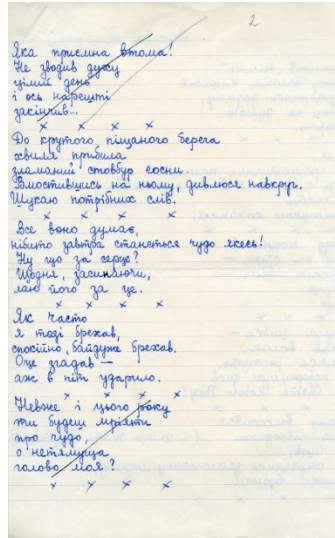 2
Яка приємна втома!
Не зводив духу
цілий день
і ось нарешті
закінчив...
x x x x
До крутого піщаного берега
хвиля прибила
зламаний стовбур сосни.
Вмостившись на ньому, дивлюся навкруг.
Шукаю потрібних слів.
x x x x
Все воно думає,
нібито завтра станеться чудо якесь!
Ну що за серце?
Щодня, засинаючи,
лаю його за це.
x x x x
Як часто
я тоді брехав,
спокійно, байдуже брехав.
Оце згадав —
аж в піт ударило.
x x x x
Невже і цього року
ти будеш мріяти
про чудо,
о нетямуща
голово моя?
x x x x